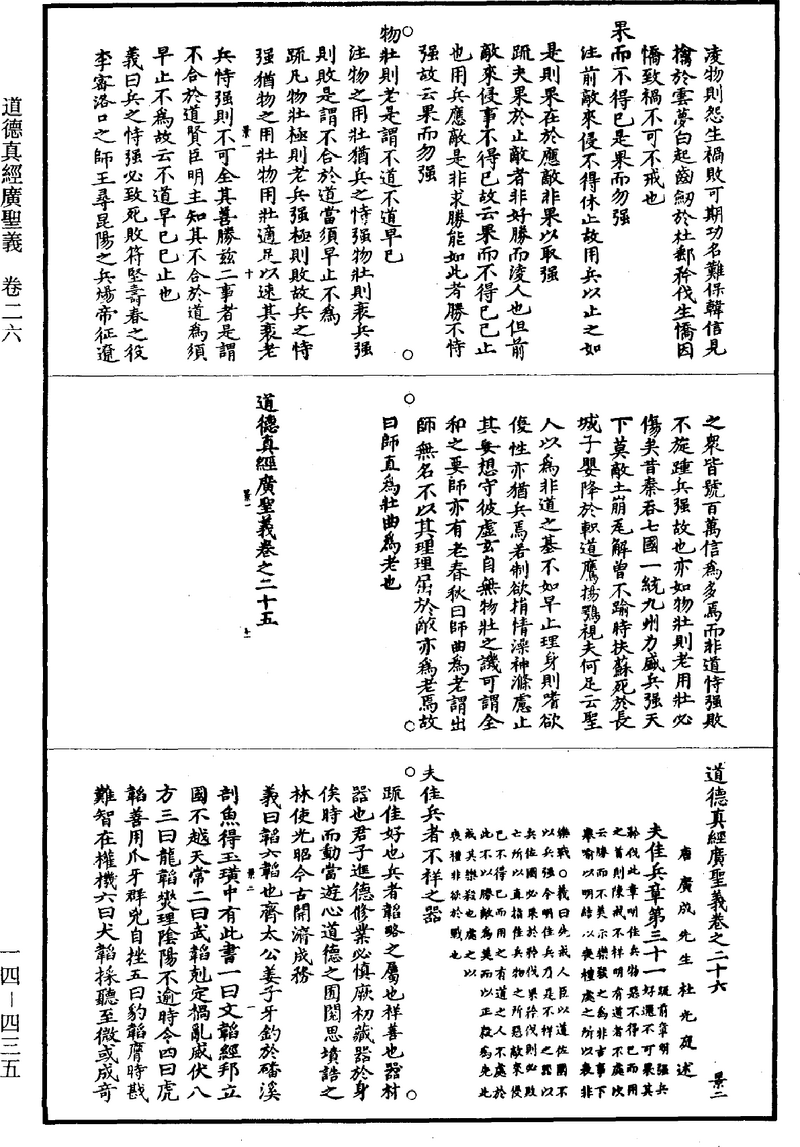 道德真經廣聖義　卷二六
一四—四三五
凌物則怨生禍敗可期功名難保韓信見
擒於雲夢白起齒劒於杜郵矜伐生憍因
憍致禍不可不戒也
果而不得已是果而勿强
注前敵來侵不得休止故用兵以止之如
是則果在於應敵非果以取强
疏夫果於止敵者非好勝而淩人也但前
敵來侵事不得已故云果而不得已已止
也用兵應敵是非求勝能如此者勝不恃
强故云果而勿强
物壯則老是謂不道不道早已
注物之用壯猶兵之恃强物壯則衰兵强
則敗是謂不合於道當須早止不爲
疏凡物壯極則老兵强極則敗故兵之恃
强猶物之用壯物用壯適足以速其衰老
景一　十
兵恃强則不可全其善勝兹二事者是謂
不合於道賢臣明主知其不合於道爲須
早止不爲故云不道早已已止也
義曰兵之恃强必致死敗符堅壽春之役
李密洛口之師王尋昆陽之兵煬帝征遼
之衆皆號百萬信爲多焉而非道恃强敗
不旋踵兵强故也亦如物壯則老用壯必
傷矣昔秦吞七國一統九州力盛兵强天
下莫敵土崩瓦解曾不踰時扶蘇死於長
城子嬰降於軹道鷹揚鶚視夫何足云聖
人以爲非道之基不如早止理身則嗜欲
侵性亦猶兵焉若制欲捐情澡神滌慮止
其妄想守彼虛玄自無物壯之譏可謂全
和之要師亦有老春秋曰師曲爲老謂出
師無名不以其理理屈於敵亦爲老焉故
曰師直爲壯曲爲老也
道德真經廣聖義卷之二十五
景一　十一
道德真經廣聖義卷之二十六
景二
唐廣成先生杜光庭述
夫佳兵章第三十一
疏前章明强兵
好還不可果其
矜伐此章明佳兵物惡不得已而用
之首則陳戒不祥明有道者不處次
云勝而不美示樂殺之爲非吉事下
舉喻以明結以喪禮處之所以表非
樂戰○義曰先戒人臣以道佐國不
以兵强今明佳兵乃是不祥之器以
兵佐國必果於矜伐果矜伐則必敗
亡所以直指佳兵物之所惡敵來侵
已不得已而用之有道之人不處於
此不以勝敵爲美而以正殺爲先此
戒其樂殺也處之以
喪禮非欲於戰也
夫佳兵者不祥之器
疏佳好也兵者韜略之屬也祥善也器材
器也君子進德修業必慎厥初藏器於身
俟時而動當遊心道德之囿閱思墳誥之
林使光昭今古開濟成務
義曰韜六韜也齊太公姜子牙釣於磻溪
景二　一
剖魚得玉璜中有此書一曰文韜經邦立
國不越天常二曰武韜剋定禍亂威伏八
方三曰龍韜爕理陰陽不逾時令四曰虎
韜善用爪牙群兇自挫五曰豹韜應時戡
難智在權機六曰犬韜採聽至微或成奇